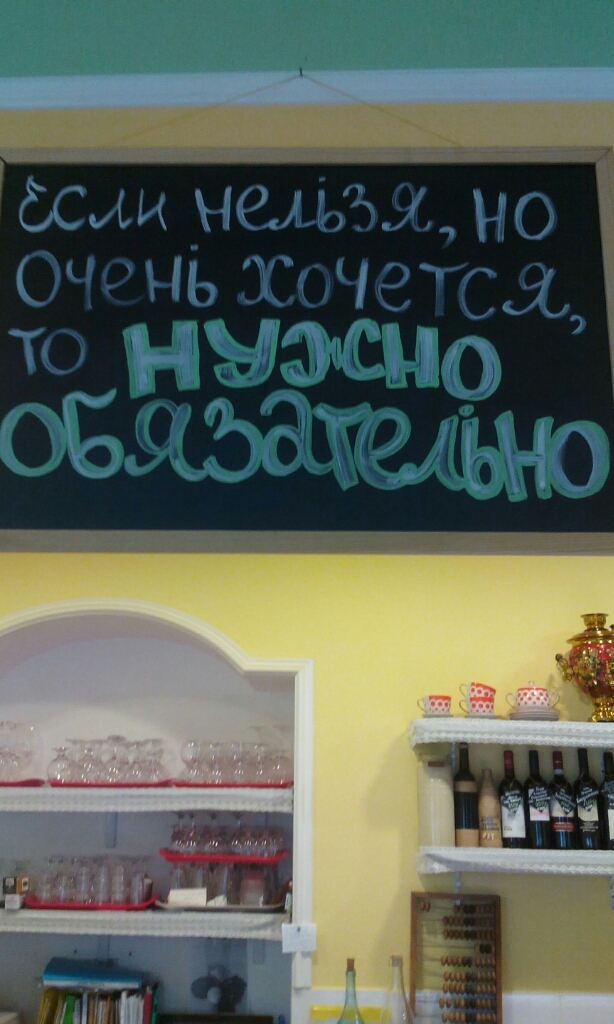 Если нельзя, но
очень хочется,
то нужно
обязательно